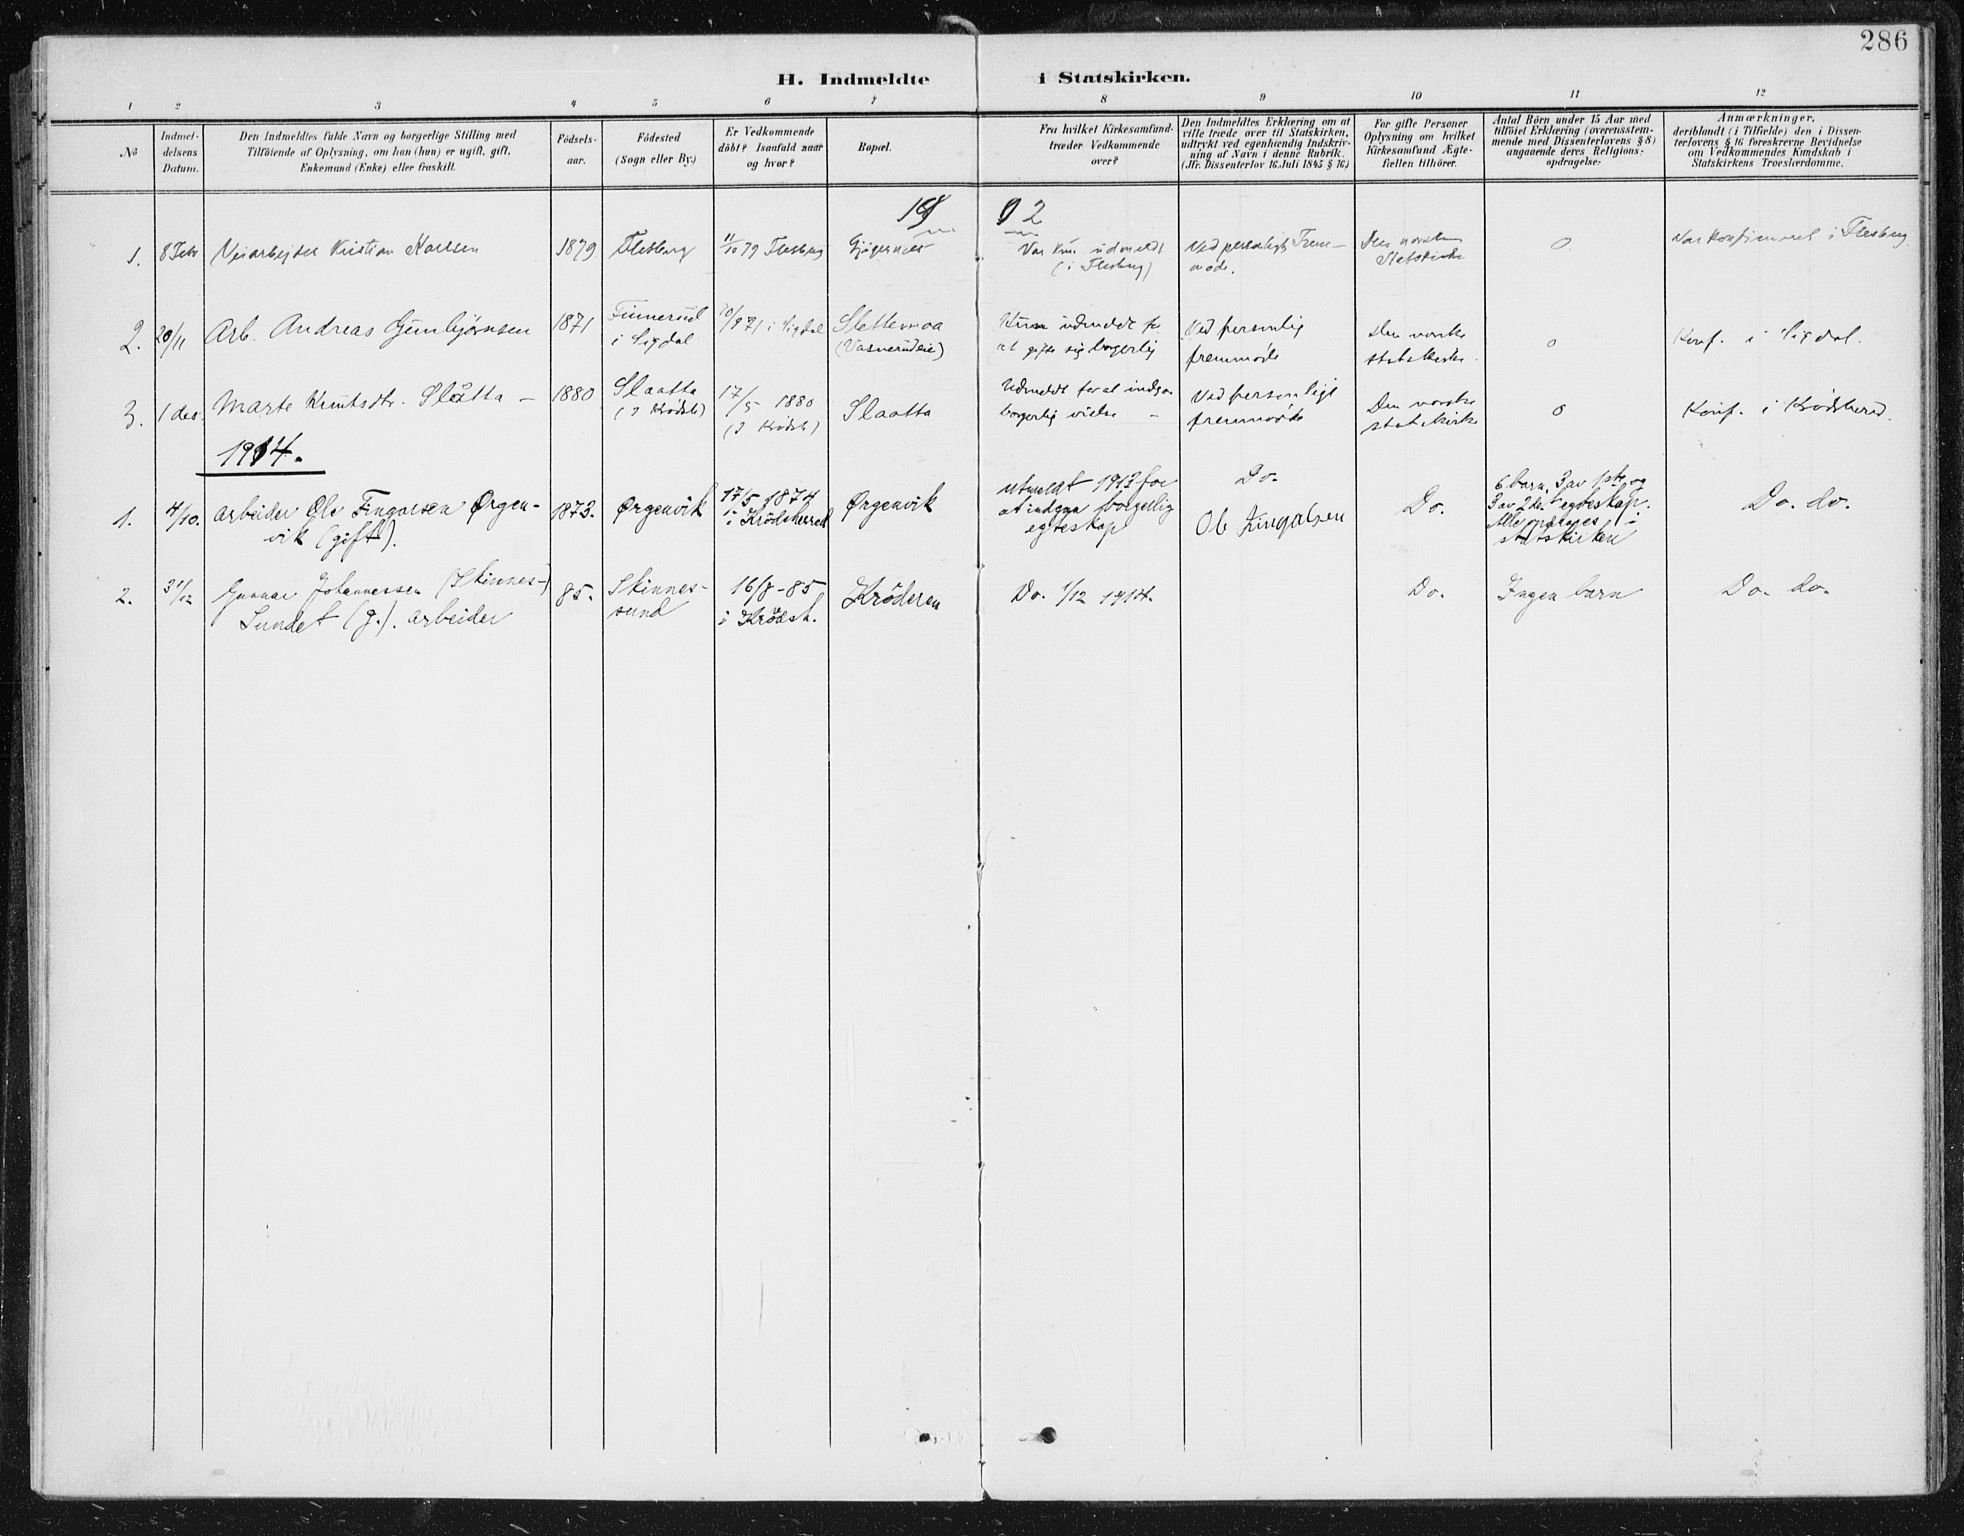 286
H. Indmeldte i Statskirken.
1 2 3 4 5 6 7 8 9 10 11 12
No
Indmel-
delsens
Datum.
Den Indmeldtes fulde Navn og borgerlige Stilling med
Tilföiende af Oplysning, om han (hun) er ugift, gift,
Enkemand (Enke) eller fraskilt.
Födsels-
aar.
Födested
(Sogn eller By.)
Er Vedkommende
döbt? Isaafald naar
og hvor?
Bopæl.
Fra hvilket Kirkesamfund
træder Vedkommende
over?
Den Indmeldtes Erklæring om at
ville træde over til Statskirken,
udtrykt ved egenhændig Indskriv-
ning af Navn i denne Rubrik.
(Jfr. Dissenterlov 16. Juli 1845 § 16.)
For gifte Personer
Oplysning om hvilket
Kirkesamfund Ægte-
fællen tilhörer.
Antal Börn under 15 Aar med
tilföiet Erklæring (overensstem-
mende med Dissenterlovens § 8)
angaaende deres Religions-
opdragelse:
Anmærkninger,
deriblandt (i Tilfælde) den i Dissen-
terlovens § 16 foreskrevne Bevidnelse
om Vedkommendes Kundskab i
Statskirkens Troeslærdomme.
19 02
1.
8 Febr
Veiarbejder Kristian Karlsen
1879
Flesberg
11/10 79 Flesberg
Gjögernes
Var kun udmeldt
(i Flesberg)
Ved personligt Frem-
møde.
Den norske
Statskirke
0
Var konfirmeret i Flesberg
2.
20/11
Arb. Andreas Gunbjørnsen
1871
Finnerud
i Sigdal
10/9 71 i Sigdal
Slettemoa
(Vasnerudeie)
Kun udmeldt for
at gifte sig borgerlig
Ved personlig
fremmøde
Den norske
statskirke.
0
Konf. i Sigdal.
3.
1 des.
Marte Knutsdtr. Slåtta –
1880
Slaatta
(I Krødsh)
17/5 1880
(I Krødsh)
Slaatta
Udmeldt for at indgaa
borgerlig vielse –
Ved personligt
fremmøde
Den norske
statskirke
0
Konf. i Krødsherad
1914.
1.
4/10.
arbeider Ole Fingarsen Ørgen-
vik (gift).
1873.
Ørgenvik
17/5 1874
i Krödsherred
Ørgenvik
utmeldt 1913 for
at indgaa borgerlig
egteskap
Do.
Ole Fingalsen
Do.
6 barn, 3 av 1ste og
3 av 2det egteskap.
Alle opdrages i
statskirken
Do. do.
2.
31/12
Gunnar Johannessen (Skinnes-)
Sundet (g.). arbeider
85.
Skinnes-
sund
16/8-85
i Krödsh.
Kröderen
Do. 1/12 1914.
Do.
Ingen barn
Do. do.